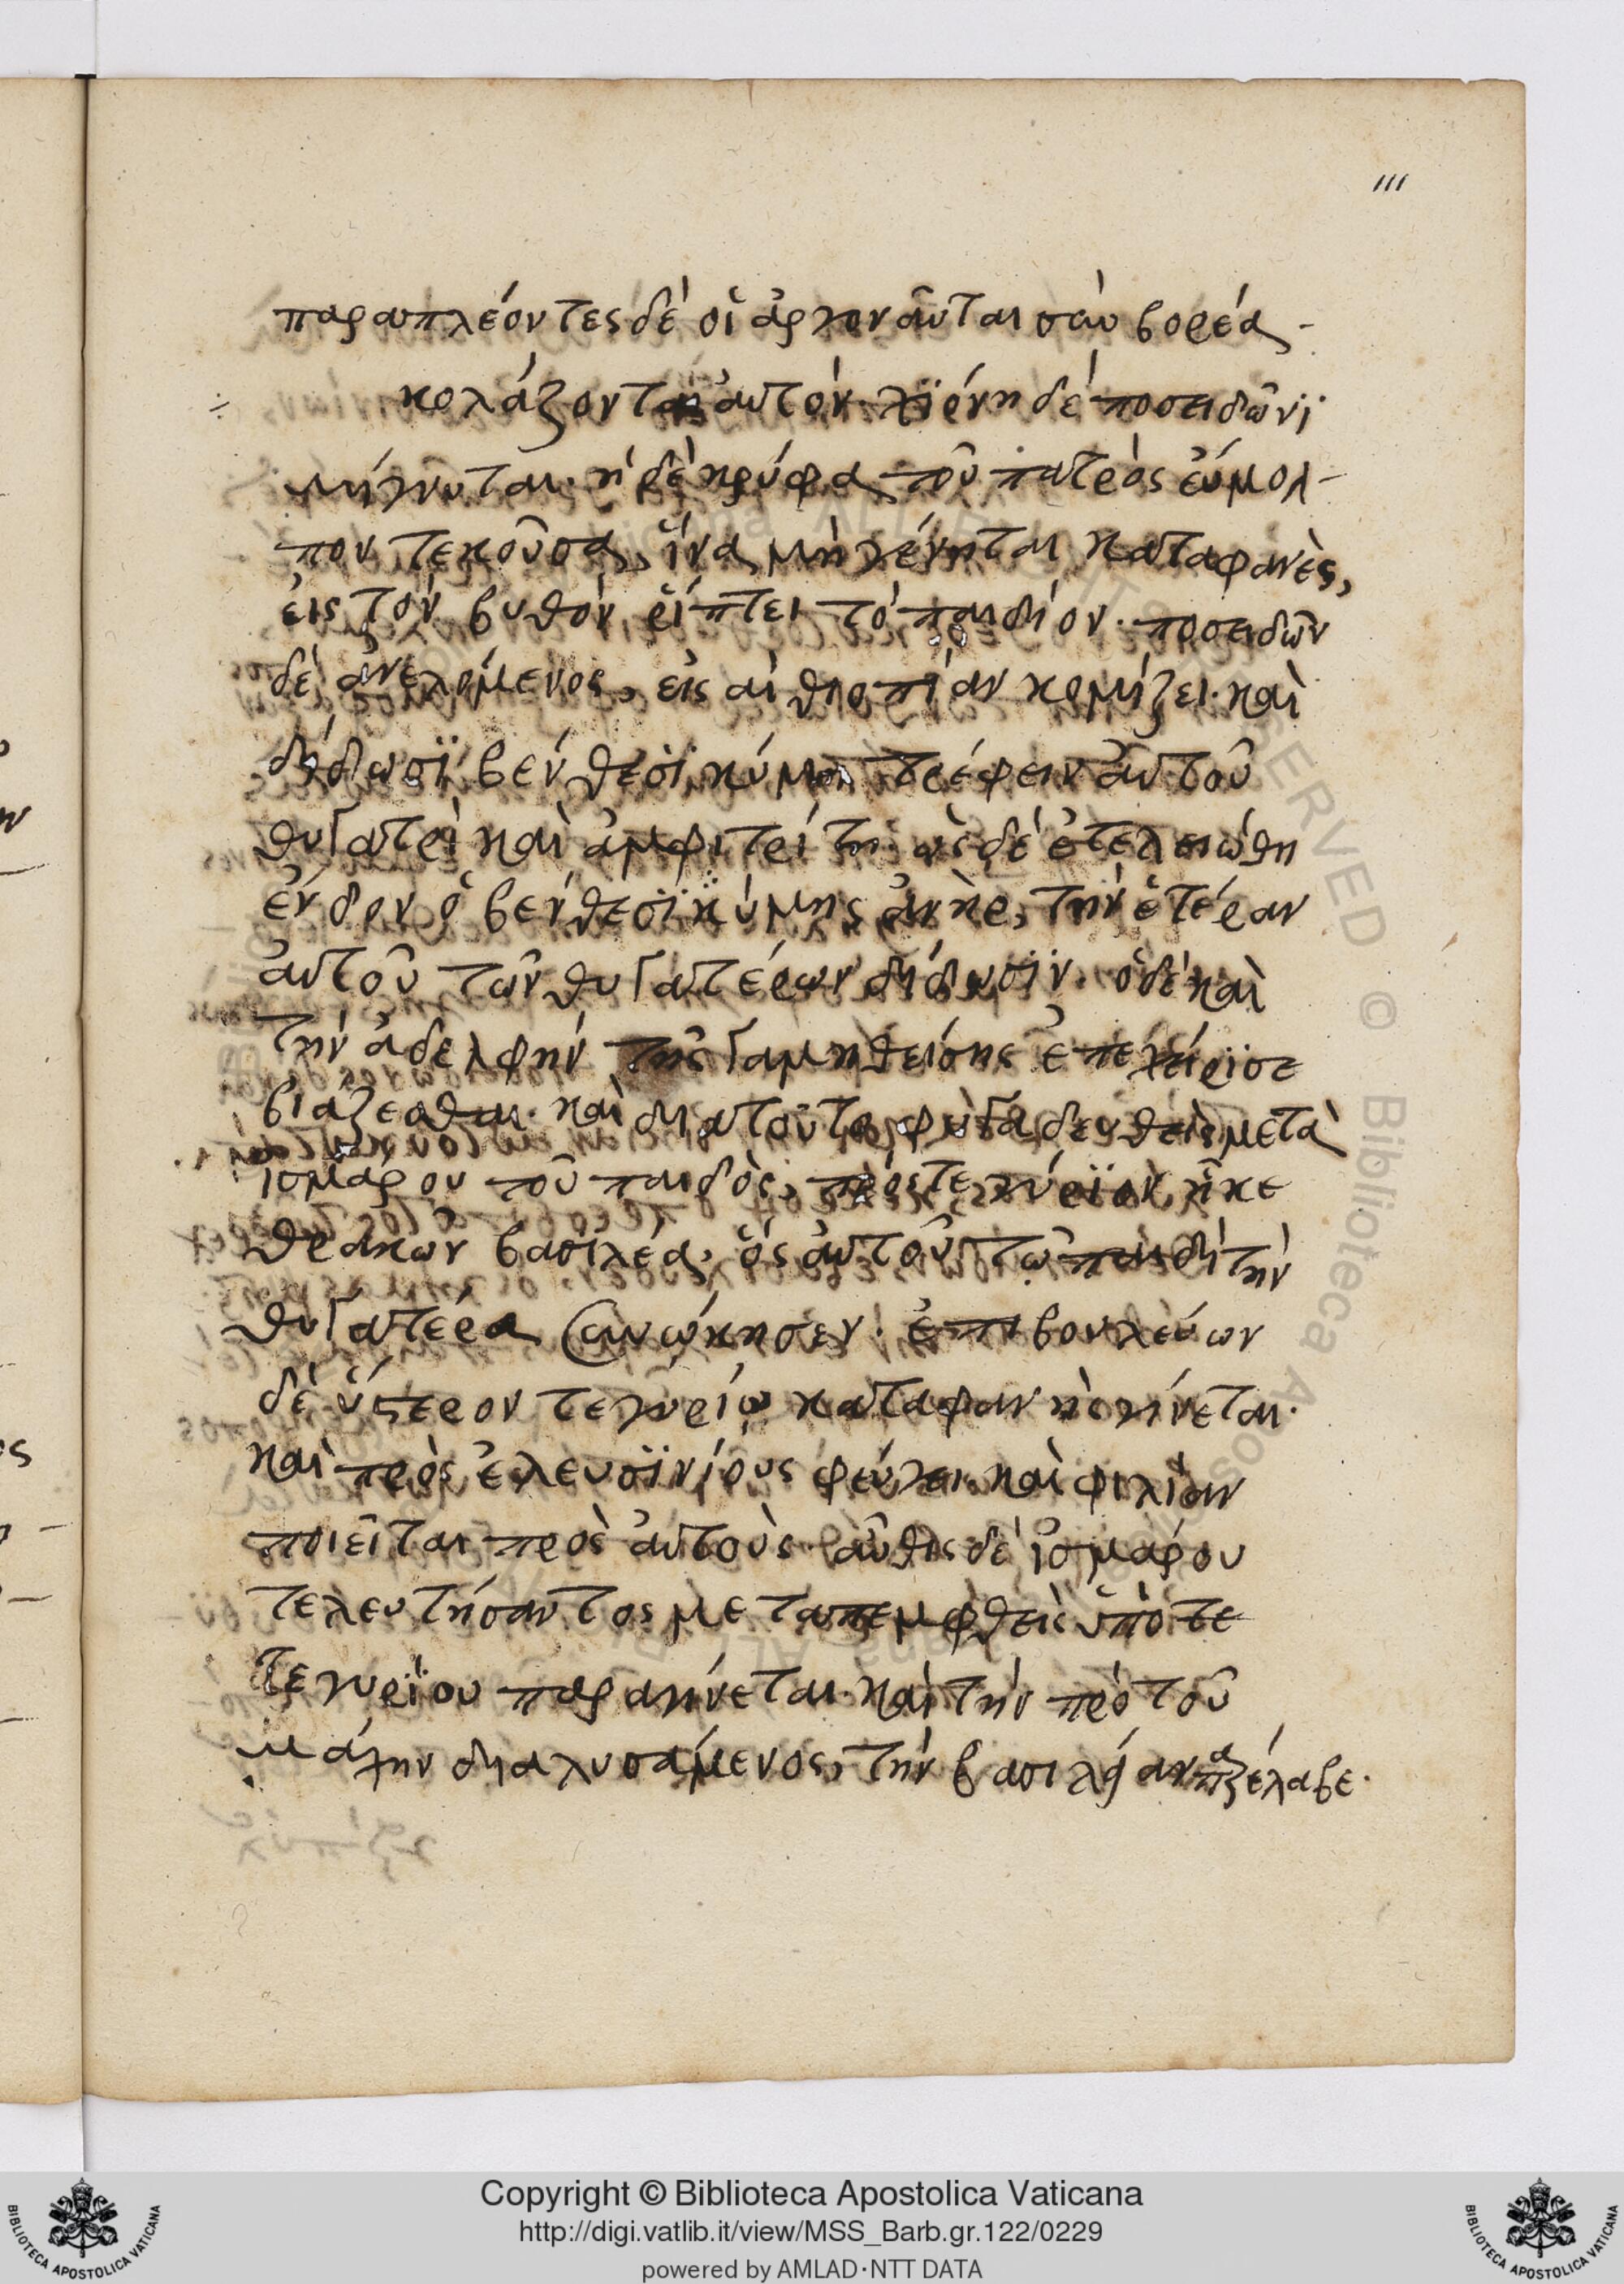 111
παραπλέοντες δὲ οἱ ἀργοναῦται σὺν βορέᾳ
κολάζονται αὐτόν. χϊόνη δὲ ποσειδῶνι
μίγνυται. ἡ δὲ κρύφα τοῦ πατρὸς εὔμολ-
πον τεκοῦσα, ἵνα μὴ γένηται καταφανὲς,
εἰς τὸν βυθὸν ῥίπτει τὸ παιδίον. ποσειδῶν
δὲ ἀνελόμενος, εἰς αἰθιοπίαν κομίζει. καὶ
δίδωσϊ βενθεσικύμῃ τρέφειν αὐτοῦ
θυγατρὶ καὶ ἀμφιτρίτης. ὡς δὲ ἐτελειώθη
ἔνδον ὁ βενθεσϊκύμης ἀνὴρ, τὴν ἑτέραν
αὐτοῦ τῶν θυγατέρων δίδωσϊν. ὁ δὲ καὶ
τὴν ἀδελφὴν τῆς γαμηθείσης ἐπεχείρϊσε
βιάζεσθαι. καὶ διατοῦτο φυγαδευθεὶς μετὰ
ἰσμάρου τοῦ παιδὸς, πρὸς τεγύρϊον ἧκε
θρακῶν βασιλέα. ὃς αὐτοῦ τῷ παιδὶ τὴν
θυγατέρα συνῴκησεν. ἐπιβουλεύων
δὲ ὕστερον τεγυρίῳ καταφανὴς γίνεται.
καὶ πρὸς ἐλευσϊνίους φεύγει καὶ φιλίαν
ποιεῖται πρὸς αὐτοὺς. αὖθις δὲ ἰσμάρου
τελευτήσαντος μεταπεμφθεὶς ὑπὸ τε
τεγυρϊου παραγίνεται. καὶ τὴν πρὸ τοῦ
μάχην διαλυσάμενος, τὴν βασιλείαν παρέλαβε.
Copyright © Biblioteca Apostolica Vaticana
http://digi.vatlib.it/view/MSS_Barb.gr.122/0229
powered by AMLAD·NTT DATA